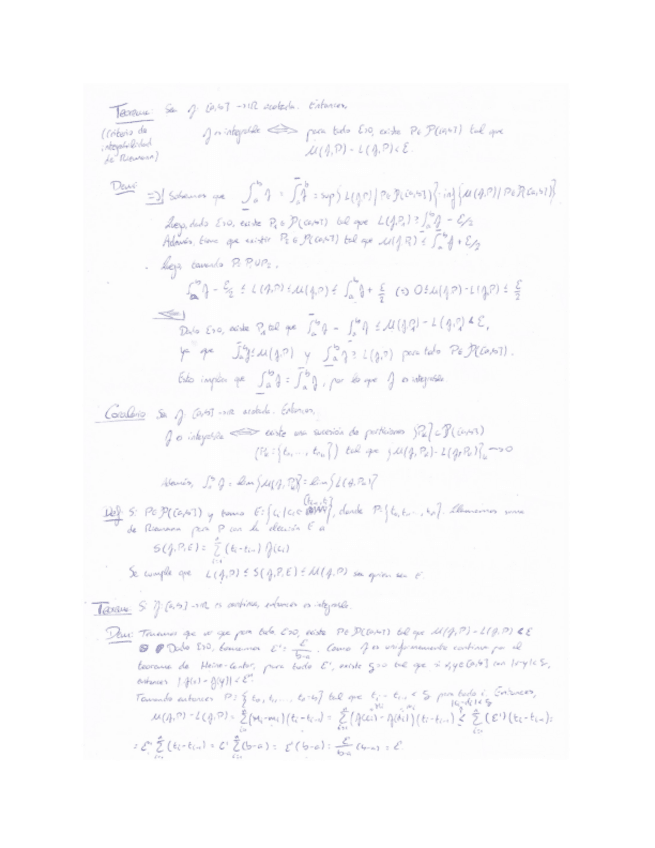 Teorema: Sea f: [a,b] → ℝ acotada. Entonces,
(Criterio de integrabilidad de Riemann) f es integrable ⟺ para todo ε>0, existe P∈𝒫([a,b]) tal que
U(f,P) - L(f,P) < ε.
Dem:
⇒) Sabemos que ∫_a^b f = ∫_a^b f = sup{L(f,P) | P∈𝒫([a,b])} = inf{U(f,P) | P∈𝒫([a,b])}
Luego, dado ε>0, existe P₁∈𝒫([a,b]) tal que L(f,P₁) ≥ ∫_a^b f - ε/2
Además, tiene que existir P₂∈𝒫([a,b]) tal que U(f,P₂) ≤ ∫_a^b f + ε/2
Luego tomando P = P₁∪P₂,
∫_a^b f - ε/2 ≤ L(f,P) ≤ U(f,P) ≤ ∫_a^b f + ε/2 ⟺ 0 ≤ U(f,P) - L(f,P) ≤ ε/2
⇐)
Dado ε>0, existe P tal que ∫_a^b f - ∫_a^b f ≤ U(f,P) - L(f,P) < ε,
ya que ∫_a^b f ≤ U(f,P) y ∫_a^b f ≥ L(f,P) para todo P∈𝒫([a,b]).
Esto implica que ∫_a^b f = ∫_a^b f, por lo que f es integrable.
Corolario Sea f: [a,b] → ℝ acotada. Entonces,
f es integrable ⟺ existe una sucesión de particiones {Pₙ}⊂𝒫([a,b])
(Pₙ = {t₀, ..., tₙ}) tal que {U(f,Pₙ) - L(f,Pₙ)}ₙ → 0
Además, ∫_a^b f = lim{U(f,Pₙ)} = lim{L(f,Pₙ)}
Def Si P∈𝒫([a,b]) y tomo E = {cᵢ | cᵢ∈[tᵢ₋₁,tᵢ]}, donde P = {t₀,t₁,...,tₙ}. Llamamos suma
de Riemann para P con la elección E a
S(f,P,E) = Σ (tᵢ - tᵢ₋₁) f(cᵢ)
Se cumple que L(f,P) ≤ S(f,P,E) ≤ U(f,P) sea quien sea E.
Teorema Si f: [a,b] → ℝ es continua, entonces es integrable.
Dem: Tenemos que ver que para todo ε>0, existe P∈𝒫([a,b]) tal que U(f,P) - L(f,P) < ε
Dado ε>0, tomamos ε' = ε/(b-a). Como f es uniformemente continua por el
teorema de Heine-Cantor, para todo ε', existe δ>0 tal que si x,y∈[a,b] con |x-y|<δ,
entonces |f(x) - f(y)| < ε'
Tomando entonces P = {t₀, t₁, ..., tₙ} tal que tᵢ - tᵢ₋₁ < δ para todo i. Entonces,
U(f,P) - L(f,P) = Σ (Mᵢ - mᵢ)(tᵢ - tᵢ₋₁) = Σ (f(cᵢ) - f(dᵢ))(tᵢ - tᵢ₋₁) ≤ Σ (ε')(tᵢ - tᵢ₋₁) =
= ε' Σ (tᵢ - tᵢ₋₁) = ε' Σ (b-a) = ε'(b-a) = ε/(b-a) (b-a) = ε